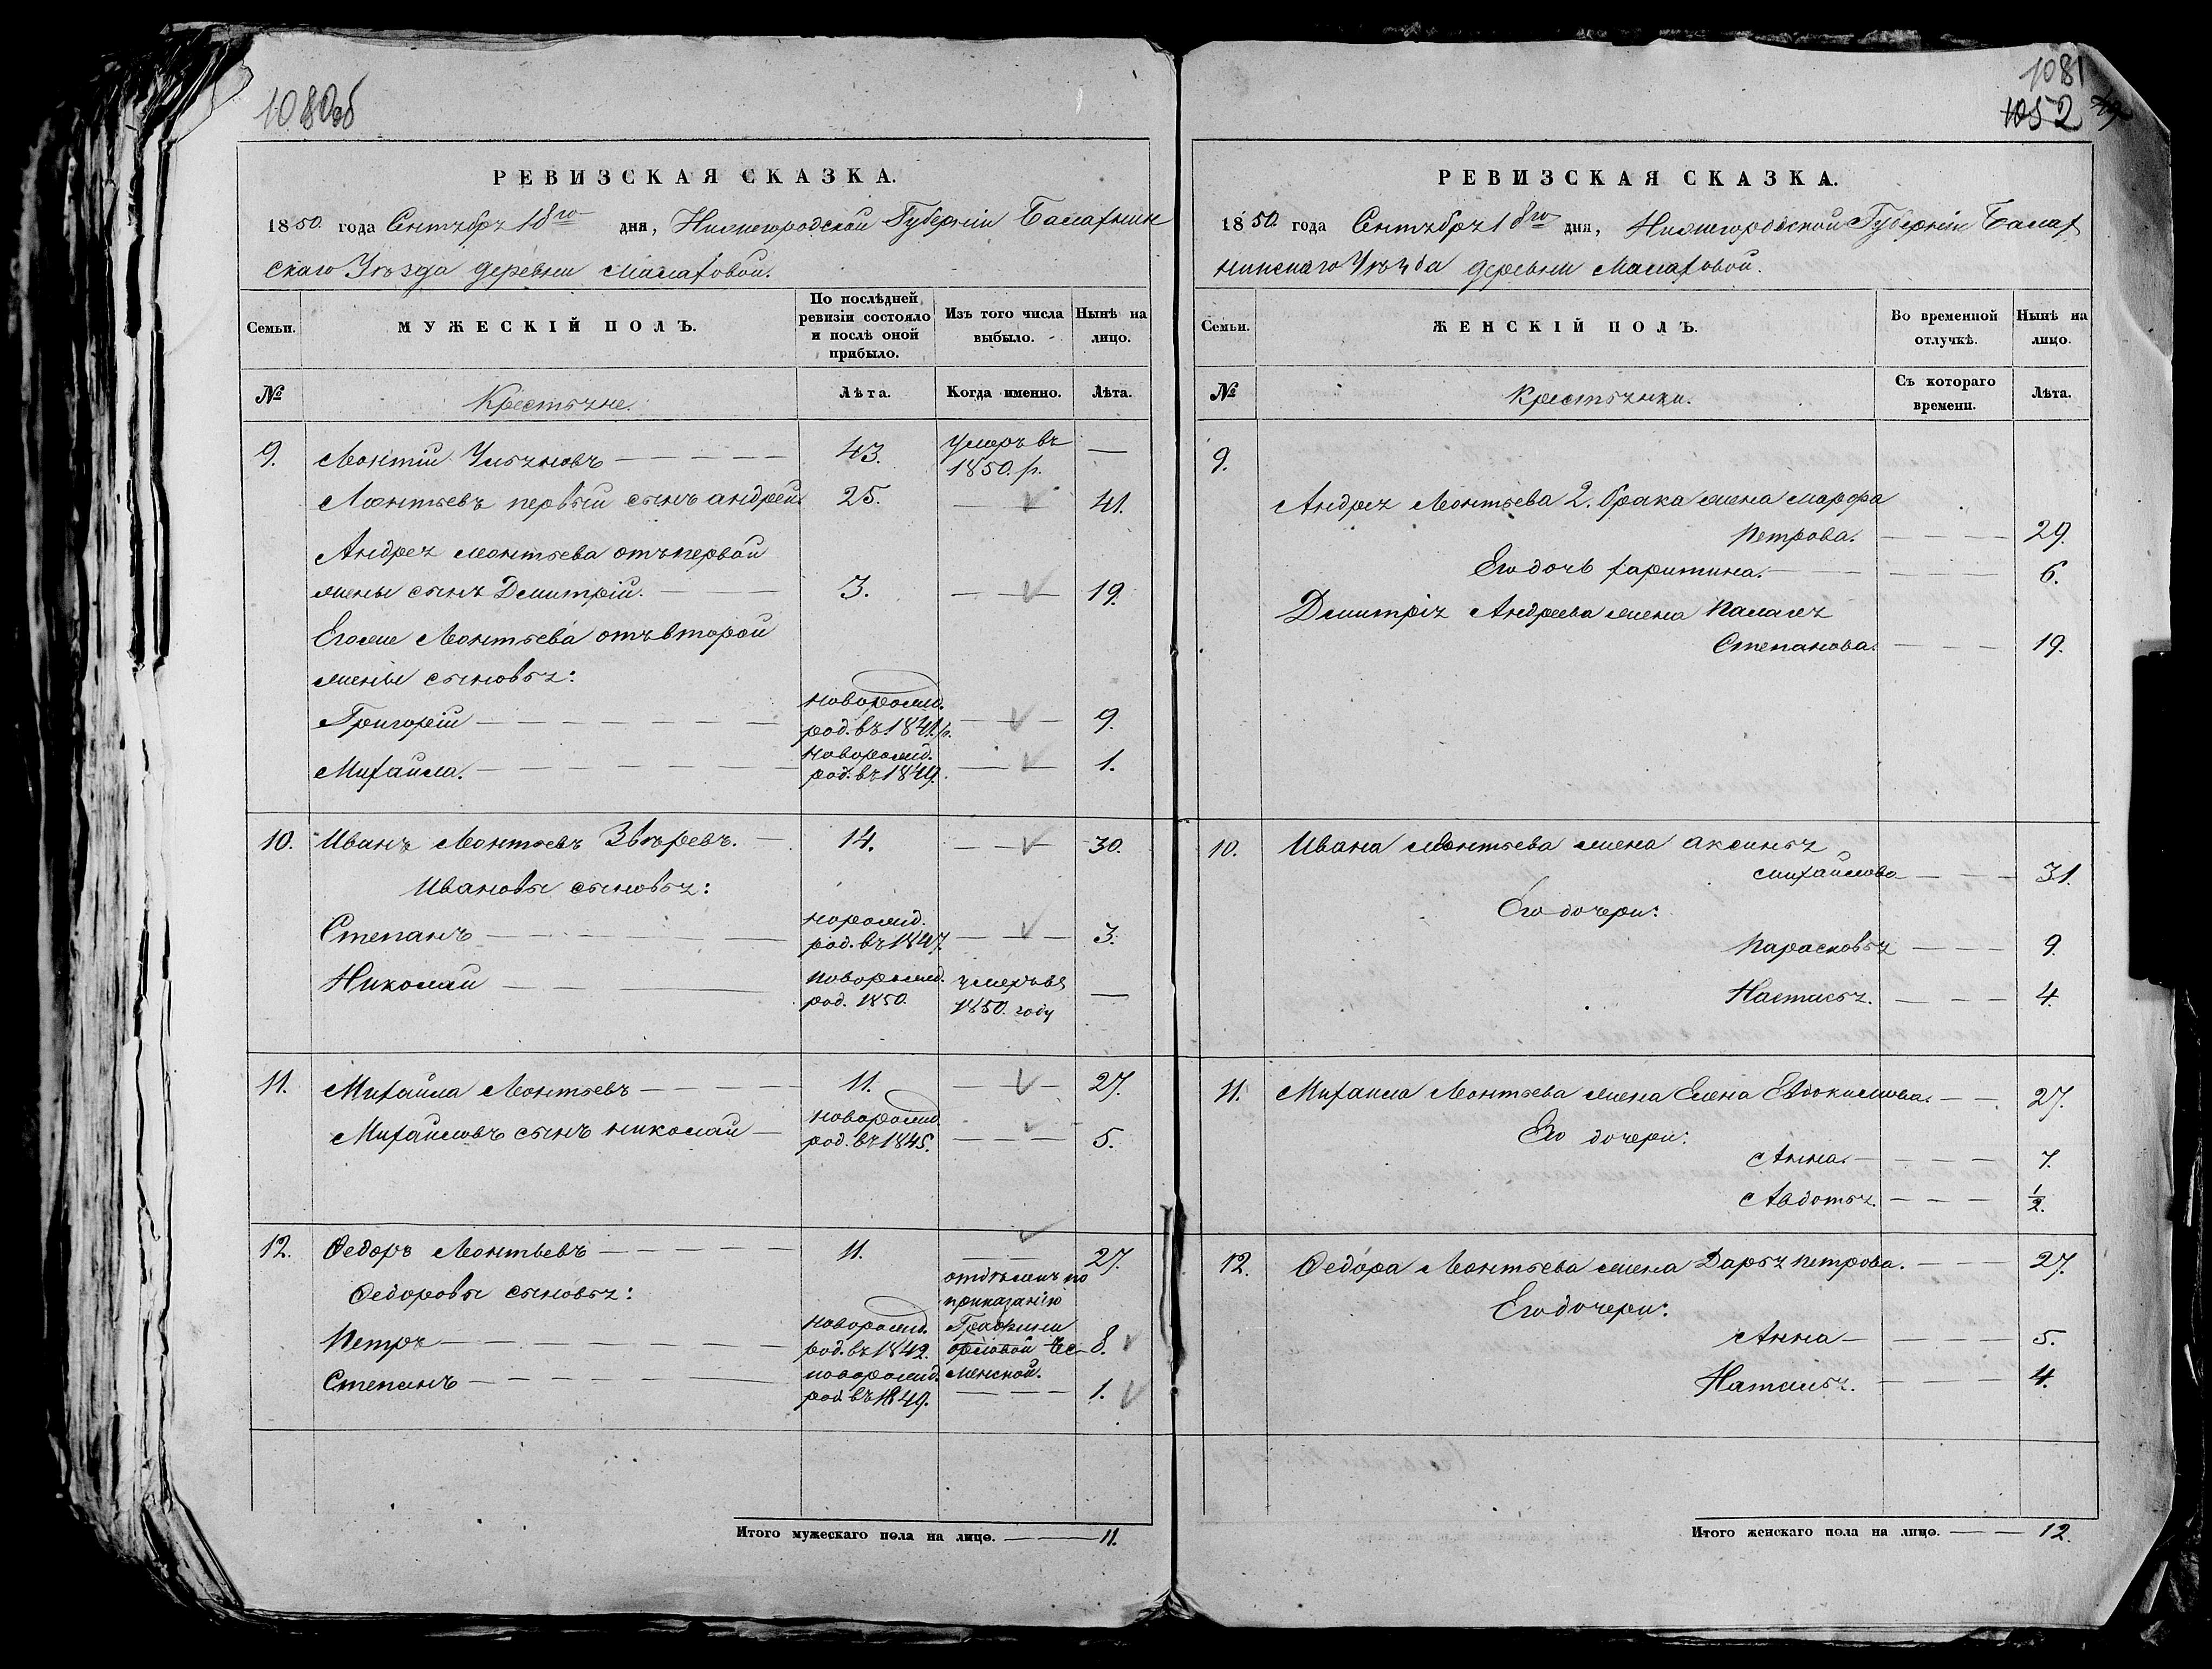 1080об
РЕВИЗСКАЯ СКАЗКА.
1850. года Сентября 18го дня, Нижегородской Губерніи Балахнин
скаго Уѣзда деревни Малаховой.
Семьи.
МУЖЕСКІЙ ПОЛЪ.
По послѣдней
ревизіи состояло
и послѣ оной
прибыло.
Изъ того числа
выбыло.
Нынѣ на
лицо.
№
Крестьяне.
Лѣта.
Когда именно.
Лѣта.
9. Леонтій Ульяновъ 43. умеръ въ
1850. г. —
Леонтьевъ первый сынъ андрей 25. — 41.
Андрея леонтьева отъ первой
жены сынъ Дмитрій. 3. — 19.
Егоже Леонтьева отъ второй
жены сыновья:
новорожд.
Григорій род. въ 1841 г. — 9.
новорожд.
Михайла. род. въ 1849. — 1.
10. Иванъ Леонтьевъ Звѣревъ. 14. — 30.
Ивановы сыновья:
норожд.
Степанъ род. въ 1847. — 3.
Николай новорожд. умеръ въ
род. 1850. 1850. году —
11. Михайла Леонтьевъ 11. — 27.
новорожд.
Михайловъ сынъ николай род. въ 1845. — 5.
12. Федоръ Леонтьевъ 11. — 27.
отдѣленъ по
Федоровы сыновья: приказанію
новорожд. Графини
Петръ род. въ 1842. орловой Че- 8.
новорожд. сменской.
Степанъ род. въ 1849. — 1.
Итого мужескаго пола на лицо. 11.
1081
1052
РЕВИЗСКАЯ СКАЗКА.
1850. года Сентября 18го дня, Нижегородской Губерніи Балах
нинскаго Уѣзда деревни Малаховой.
Семьи.
ЖЕНСКІЙ ПОЛЪ.
Во временной
отлучкѣ.
Нынѣ на
лицо.
№
Крестьянки.
Съ котораго
времени.
Лѣта.
9.
Андрея Леонтьева 2. брака жена марфа
Петрова. 29.
Его дочь харитина. 6.
Дмитрія Андреева жена Палагея
Степанова. 19.
10. Ивана леонтьева жена аксинья
михайлова 31.
Его дочери:
Парасковья 9.
Настасья. 4.
11. Михайла Леонтьева жена Елена Евдокимова. 27.
Его дочери:
Анна. 7.
Авдотья. 1/2.
12. Федора Леонтьева жена Дарья петрова. 27.
Его дочери:
Анна 5.
Наталья. 4.
Итого женскаго пола на лицо. 12.